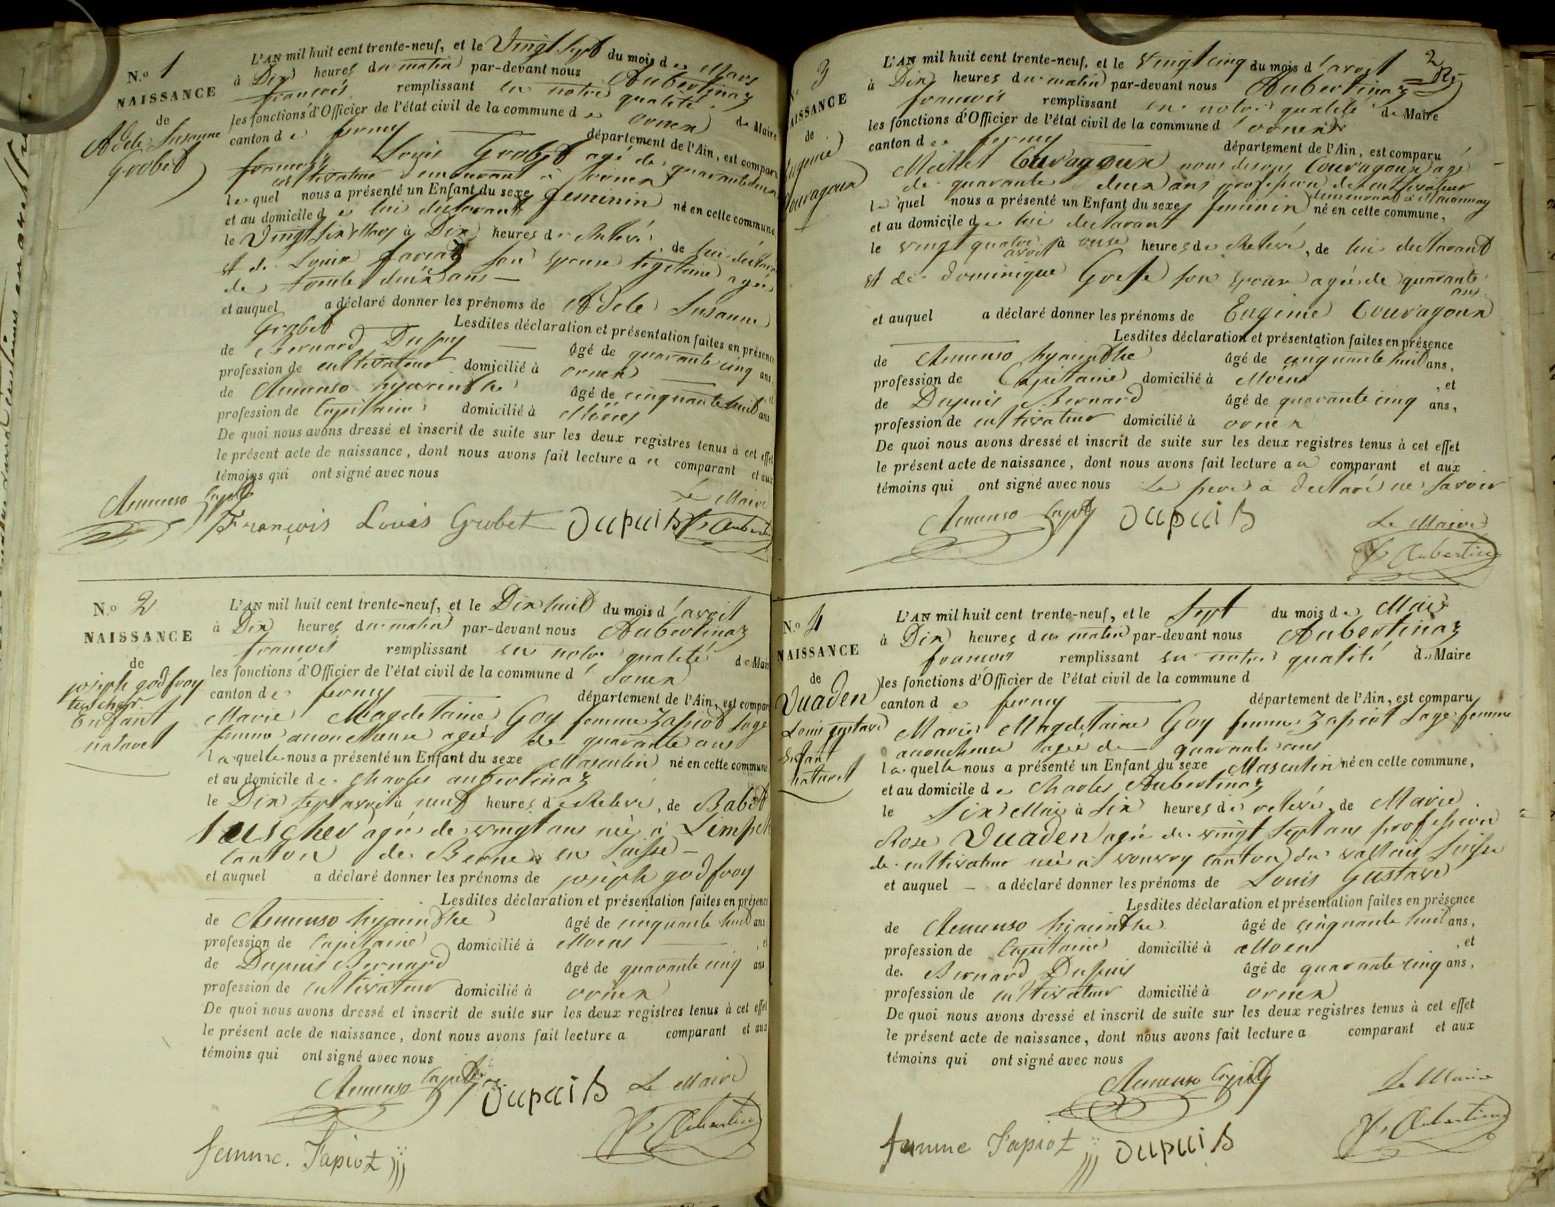 N.º 1
NAISSANCE
de
Adele Susanne
Grobet
L'AN mil huit cent trente-neuf, et le Vingt Sept du mois de Mars
à Dix heures du matin par-devant nous Aubertinaz
françois remplissant en notre qualité de Maire
les fonctions d'Officier de l'état civil de la commune d ornex
canton de ferney département de l'Ain, est comparu
françois Louis Grobet agé de quarante deux
cultivateur demeurant à ornex
lequel nous a présenté un Enfant du sexe feminin né en cette commune
et au domicile de lui déclarant
le Vingt Six Mars à Dix heures de Relevé, de lui déclarant
et de Louise son épouse légitime agée
de trente deux ans
et auquel a déclaré donner les prénoms de Adele Susanne
Grobet Lesdites déclaration et présentation faites en présence
de Bernard Dupuy âgé de quarante cinq ans
profession de cultivateur domicilié à ornex
de Amenso hyacinthe âgé de cinquante huit ans
profession de Capitaine domicilié à Moëns
De quoi nous avons dressé et inscrit de suite sur les deux registres tenus à cet effet
le présent acte de naissance, dont nous avons fait lecture a u comparant et aux
témoins qui ont signé avec nous
Le Maire
François Louis Grobet Dupuits F. Aubertin
N.º 2
NAISSANCE
de
joseph godfroy
teuscher
Enfant
naturel
L'AN mil huit cent trente-neuf, et le Dix huit du mois d'avril
à Dix heures du matin par-devant nous Aubertinaz
françois remplissant en notre qualité de Maire
les fonctions d'Officier de l'état civil de la commune d'ornex
canton de ferney département de l'Ain, est comparu
Marie Magdelaine Goy femme Zapiot Sage
femme accoucheuse agée de quarante ans
laquelle nous a présenté un Enfant du sexe Masculin né en cette commune
et au domicile de Charles aubertinaz
le Dix sept avril à neuf heures de Relevé, de Babet
teuscher agée de vingt ans née à
canton de Berne en Suisse
et auquel a déclaré donner les prénoms de joseph godfroy
Lesdites déclaration et présentation faites en présence
de Amenso hyacinthe âgé de cinquante huit ans
profession de Capitaine domicilié à Moens, et
de Dupuis Bernard âgé de quarante cinq ans
profession de cultivateur domicilié à ornex
De quoi nous avons dressé et inscrit de suite sur les deux registres tenus à cet effet
le présent acte de naissance, dont nous avons fait lecture a comparant et aux
témoins qui ont signé avec nous
Dupuits Le Maire
F. Aubertin
femme Zapiot
2
N.º 3
NAISSANCE
de
Eugenie
Couragoux
L'AN mil huit cent trente-neuf, et le Vingt cinq du mois d'avril
à Dix heures du matin par-devant nous Aubertinaz
françois remplissant en notre qualité de Maire
les fonctions d'Officier de l'état civil de la commune d'ornex
canton de ferney département de l'Ain, est comparu
Couragoux nous disons Couragoux agé
de quarante deux ans profession de cultivateur
lequel nous a présenté un Enfant du sexe feminin né en cette commune,
et au domicile de lui déclarant
le vingt quatre avril à onze heures de Relevé, de lui déclarant
et de dominique Gosse son épouse agée de quarante
ans
et auquel a déclaré donner les prénoms de Eugenie Couragoux
Lesdites déclaration et présentation faites en présence
de Amenso hyacinthe âgé de cinquante huit ans,
profession de Capitaine domicilié à Moëns, et
de Dupuis Bernard âgé de quarante cinq ans,
profession de cultivateur domicilié à ornex
De quoi nous avons dressé et inscrit de suite sur les deux registres tenus à cet effet
le présent acte de naissance, dont nous avons fait lecture a u comparant et aux
témoins qui ont signé avec nous Le pere a declaré ne savoir
Dupuits Le Maire
F. Aubertin
N.º 4
NAISSANCE
de
Vuaden
Louis gustave
Enfant
naturel
L'AN mil huit cent trente-neuf, et le Sept du mois de Mai
à Dix heures du matin par-devant nous Aubertinaz
françois remplissant en notre qualité de Maire
les fonctions d'Officier de l'état civil de la commune d
canton de ferney département de l'Ain, est comparu
Marie Magdelaine Goy femme Zapiot Sage femme
accoucheuse agée de quarante ans
laquelle nous a présenté un Enfant du sexe Masculin né en cette commune,
et au domicile de Charles Aubertinaz
le Six Mai à Six heures de relevé, de Marie
Rose Vuaden agée de vingt Sept ans profession
de cultivateur née à vouvry canton du vallais Suisse
et auquel a déclaré donner les prénoms de Louis Gustave
Lesdites déclaration et présentation faites en présence
de Amenso hyacinthe âgé de cinquante huit ans,
profession de Capitaine domicilié à Moens, et
de Bernard Dupuis âgé de quarante cinq ans,
profession de cultivateur domicilié à ornex
De quoi nous avons dressé et inscrit de suite sur les deux registres tenus à cet effet
le présent acte de naissance, dont nous avons fait lecture a comparant et aux
témoins qui ont signé avec nous
Le Maire
femme Zapiot Dupuits F. Aubertin